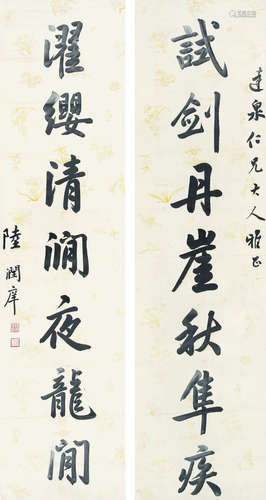 達泉仁兄大人雅正
試劍丹崖秋隼疾
濯纓清澗夜龍閒
陸潤庠